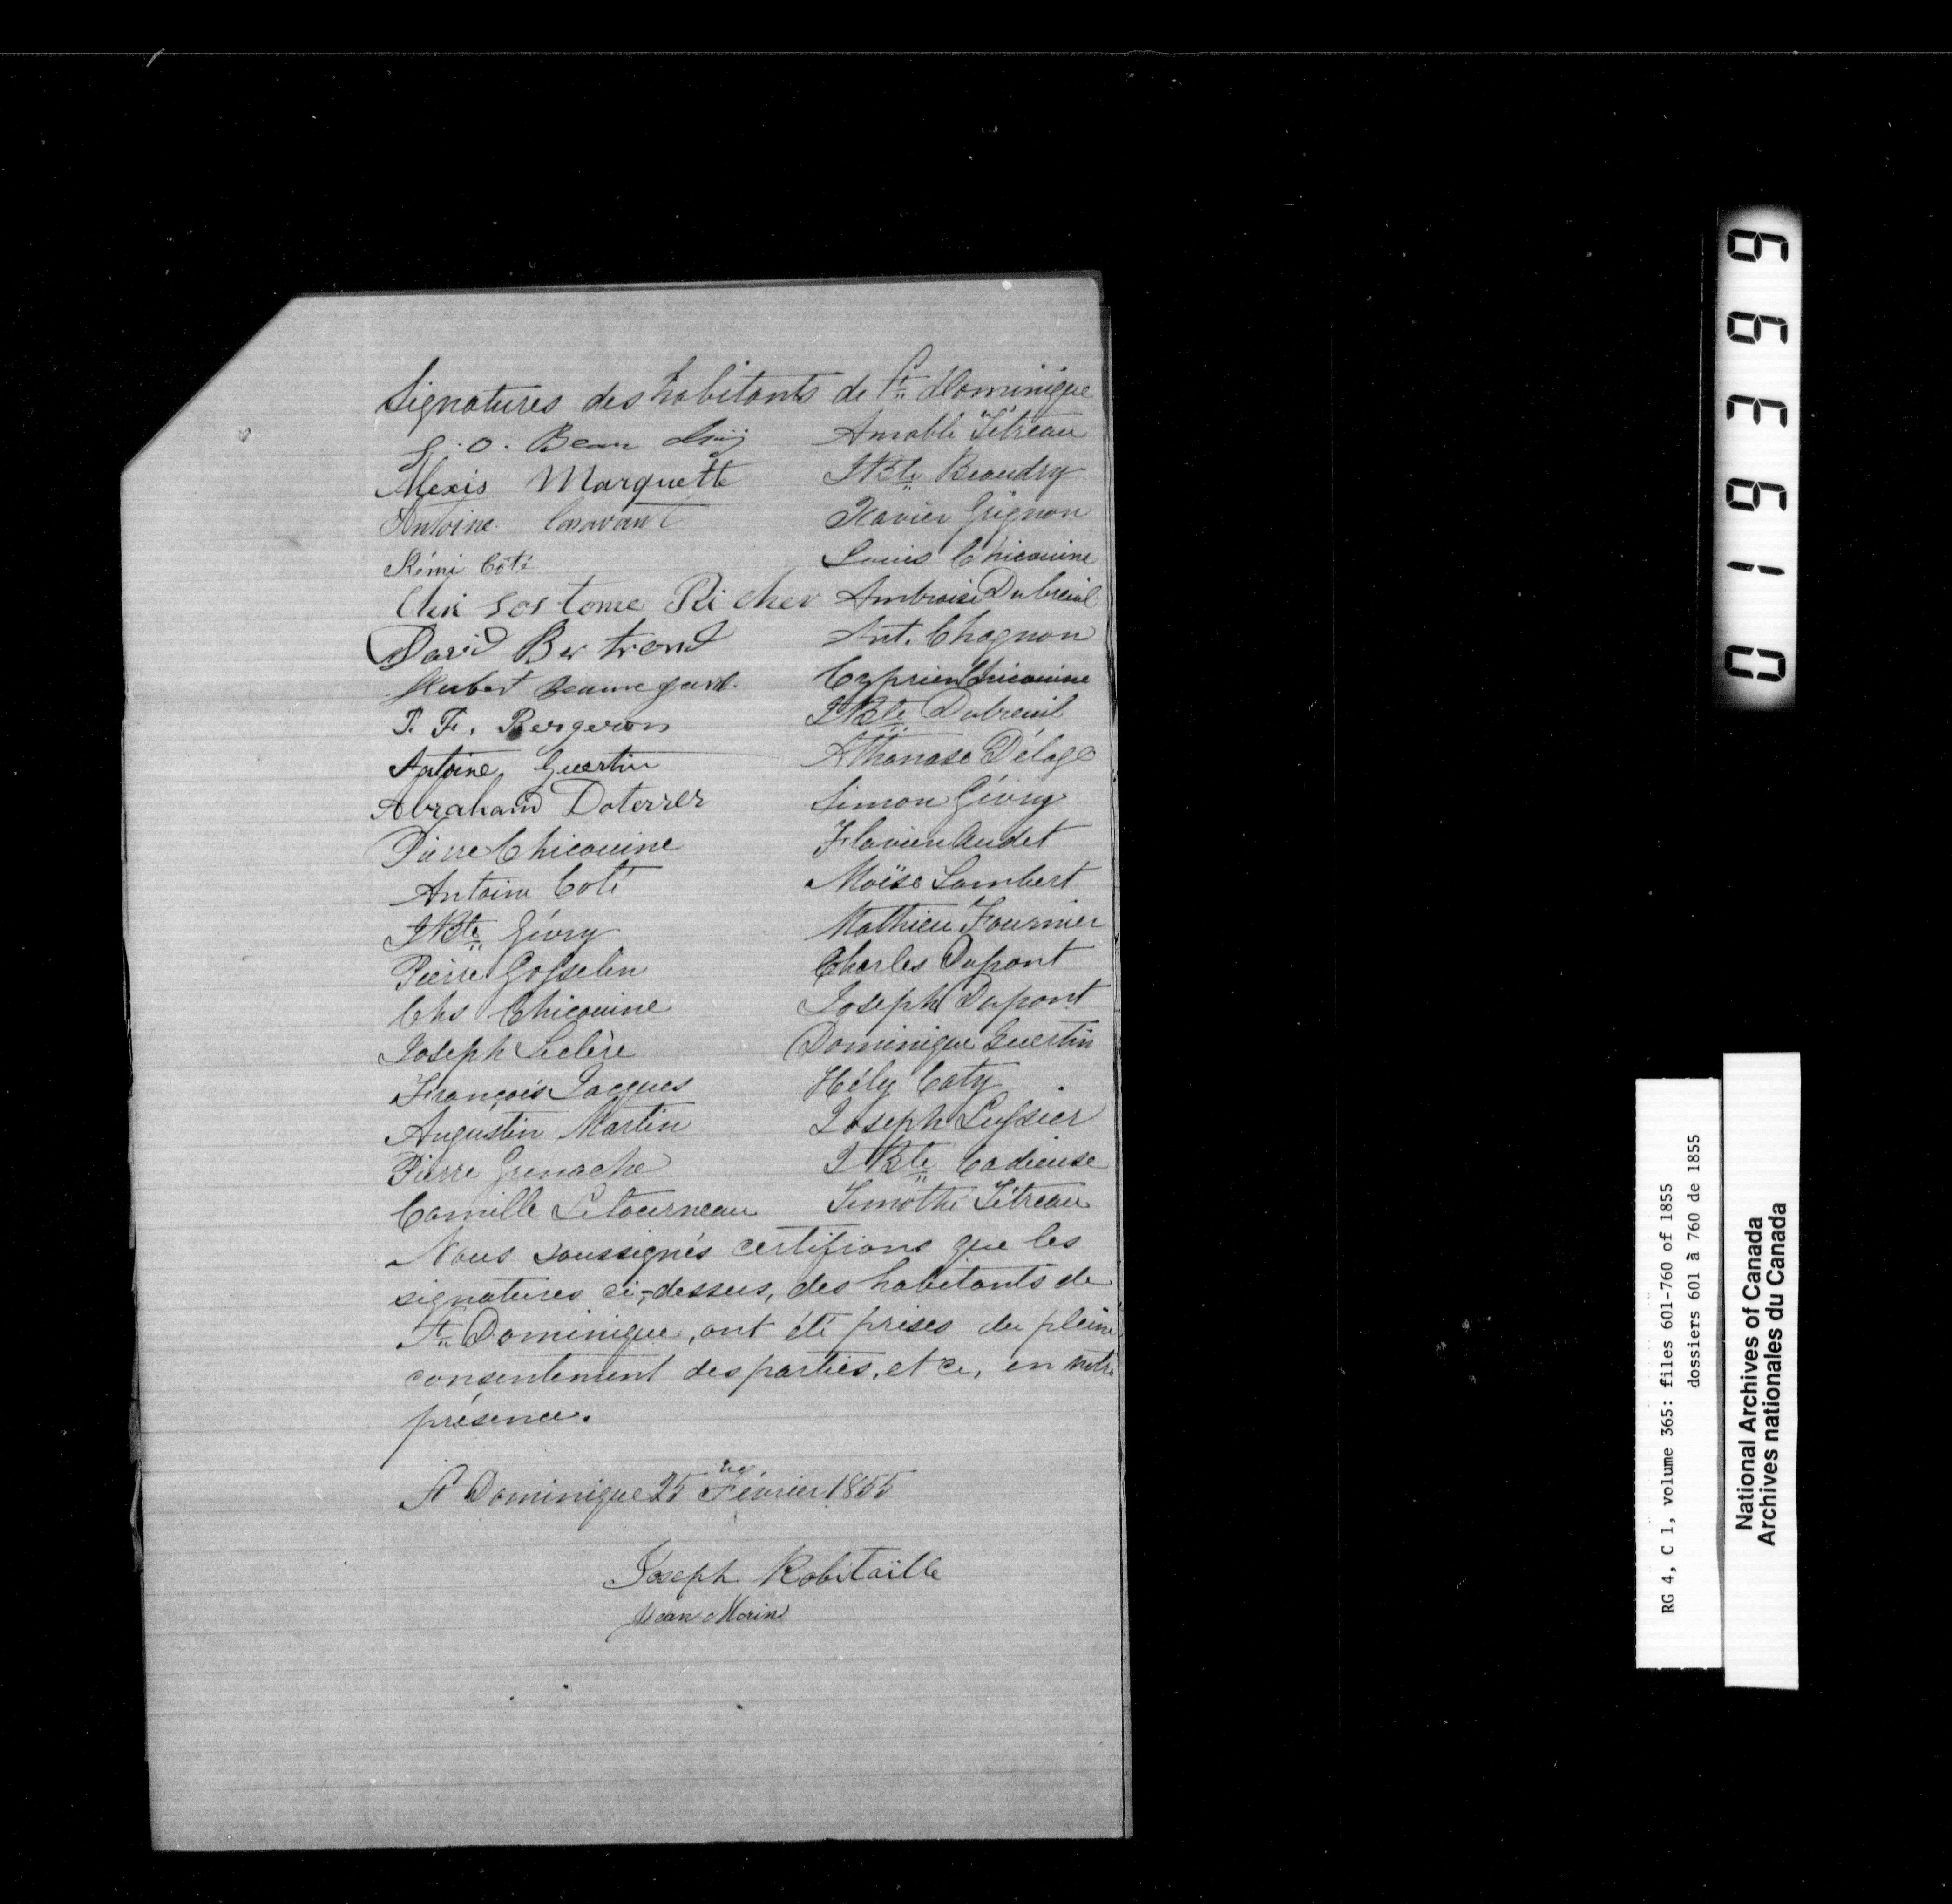 Signatures des habitants de St Dominique
Alexis Marquette
Antoine Casavant
Rémi Coté
Cleri sos tome Richer
David Bertrand
Hubert Beauregard.
P. F. Bergeron
Antoine Guertin
Abraham Doterrer
Pierre Chicouine
Antoine Coté
J Bte Gévry
Pierre Gosselin
Chs Chicouine
Joseph Leclère
François Jacques
Augustin Martin
Pierre Grenache
Camille Letourneau
Amable Tétreau
J Bte Beaudry
Xavier Grignon
Louis Chicouine
Ambroise Dubreuil
Ant. Chagnon
Cyprien Chicouine
J Bte Dubreuil
Athanase Délage
Simon Gévry
Flavien Audet
Moïse Lambert
Mathieu Fournier
Charles Dupont
Joseph Dupont
Dominique Guertin
Hély Caty
Joseph Lussier
J Bte Cadieuse
Timothé Tétreau
Nous soussignés certifions que les
signatures ci-dessus, des habitants de
St Dominique, ont été prises du plein
consentement des parties, et ce, en notre
présence.
St Dominique 25 Février 1855
Joseph Robitaille
Jean Morin
013699
RG 4, C 1, volume 365: files 601-760 of 1855
dossiers 601 à 760 de 1855
National Archives of Canada
Archives nationales du Canada